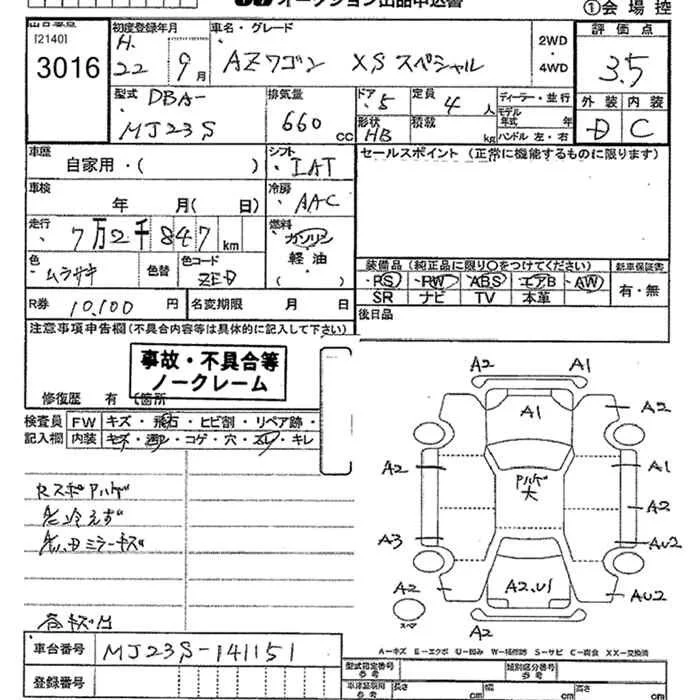 オークション出品申込書
①会場控
[2140]
3016
初度登録年月
H.
22年 9月
車名・グレード
AZワゴン XSスペシャル
2WD
・
4WD
評価点
3.5
外装 内装
D C
型式
DBA-
MJ23S
排気量
660 cc
ドア
・5
形状
HB
定員
4人
積載
kg
ディーラー・並行
モデル
年式 年
ハンドル 左・右
車歴
自家用・( )
シフト
・IAT
車検
年 月( 日)
冷房
・AAC
走行
・7万2千847km
燃料
・ガソリン
軽油
( )
色
・ムラサキ
色替
色コード
ZED
R券 10,100 円
名変期限 月 日
セールスポイント (正常に機能するものに限ります)
装備品 (純正品に限り○をつけてください)
・PS ・PW ABS エアB ・AW
SR ナビ TV 本革
新車保証書
有・無
後日品
注意事項申告欄(不具合内容等は具体的に記入して下さい)
事故・不具合等
ノークレーム
修復歴 有 (箇所
検査員
記入欄
FW キズ・飛石・ヒビ割・リペア跡・
内装 キズ・コゲ・穴・スレ・キレ
A2 A1
A1
A2
A2
A1
A2
A3
AU2
A2
AU2
A2.U1
A2
スペア
A-キズ E-エクボ U-凹み W-補修跡 S-サビ C-腐食 XX-交換済
車台番号 MJ23S-141151
登録番号
型式指定番号
参考
類別区分番号
参考
長さ cm
幅 cm
高さ cm